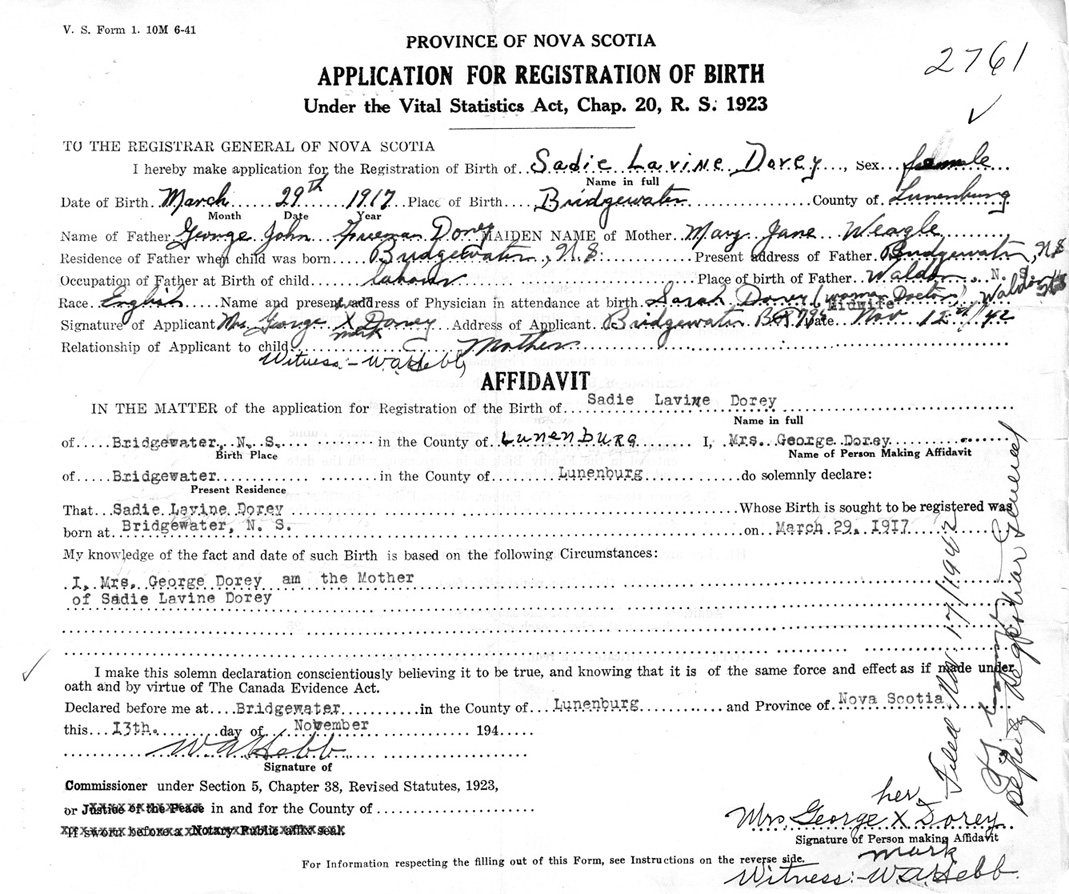 V. S. Form 1. 10M 6-41
PROVINCE OF NOVA SCOTIA
2761
APPLICATION FOR REGISTRATION OF BIRTH
Under the Vital Statistics Act, Chap. 20, R. S. 1923
TO THE REGISTRAR GENERAL OF NOVA SCOTIA
I hereby make application for the Registration of Birth of Sadie Lavine Dorey, Sex female
Name in full
Date of Birth March 29th 1917 Place of Birth Bridgewater County of Lunenburg
Month Date Year
Name of Father George John Freeman Dorey MAIDEN NAME of Mother Mary Jane Weagle
Residence of Father when child was born Bridgewater, N.S. Present address of Father Bridgewater, N.S
Occupation of Father at Birth of child labourer Place of birth of Father Waldon, N. S
Race English Name and present address of Physician in attendance at birth Sarah Dorey (woman Doctor) Midwife Waldon
Signature of Applicant Mrs. George X Dorey Address of Applicant Bridgewater Date Nov 12th/42
mark
Relationship of Applicant to child Mother
Witness:- WAHebb
AFFIDAVIT
IN THE MATTER of the application for Registration of the Birth of Sadie Lavine Dorey
Name in full
of Bridgewater, N. S. in the County of Lunenburg I, Mrs. George Dorey
Birth Place Name of Person Making Affidavit
of Bridgewater in the County of Lunenburg do solemnly declare:
Present Residence
That Sadie Lavine Dorey Whose Birth is sought to be registered was
born at Bridgewater, N. S. on March 29, 1917
My knowledge of the fact and date of such Birth is based on the following Circumstances:
I, Mrs. George Dorey am the Mother
of Sadie Lavine Dorey
I make this solemn declaration conscientiously believing it to be true, and knowing that it is of the same force and effect as if made under
oath and by virtue of The Canada Evidence Act.
Declared before me at Bridgewater in the County of Lunenburg and Province of Nova Scotia
this 13th. day of November 194
WAHebb
Signature of
Commissioner under Section 5, Chapter 38, Revised Statutes, 1923,
or Justice of the Peace in and for the County of
If sworn before a Notary Public affix seal
her
Mrs George X Dorey
Signature of Person making Affidavit
mark
For Information respecting the filling out of this Form, see Instructions on the reverse side.
Witness:- WAHebb
Filed Nov 17/1942
Deputy Registrar General